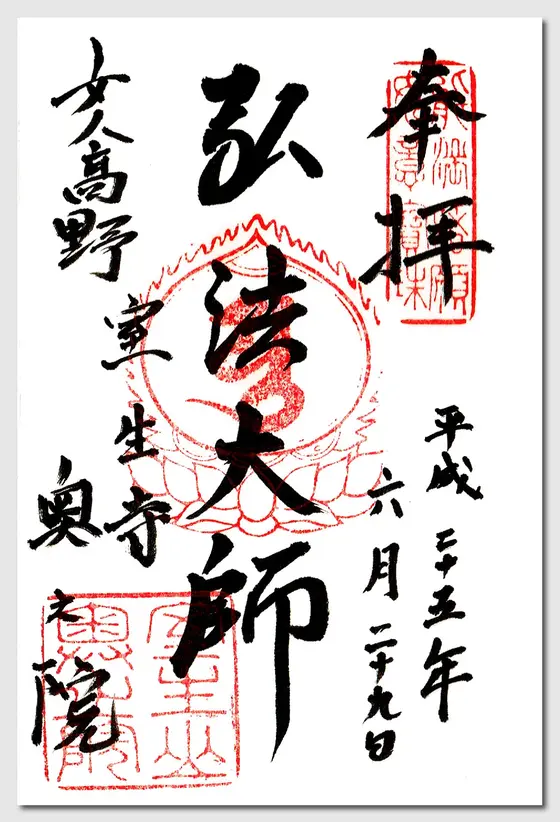 奉拝
平成二十五年
六月二十九日
弘法大師
女人高野
室生寺
奥之院